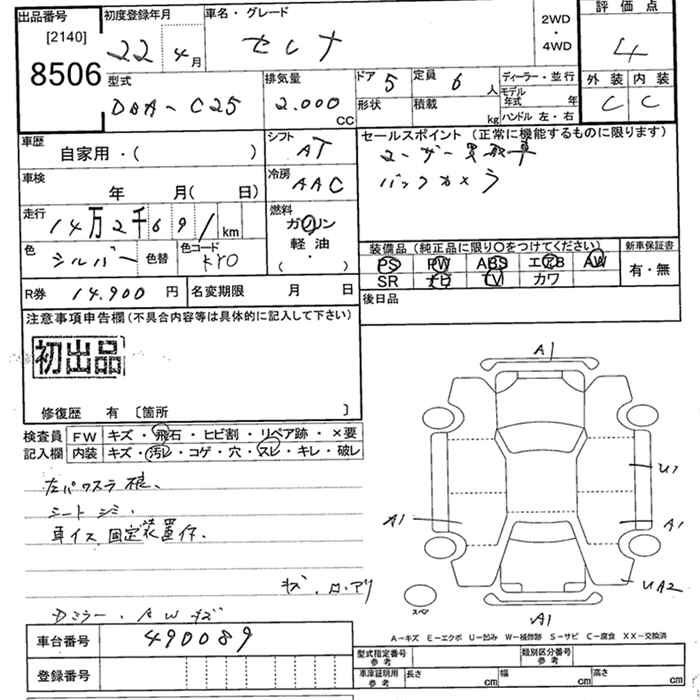 出品番号 初度登録年月 車名・グレード 2WD・4WD 評価点
[2140] 22 4月 セレナ 4
8506
型式 排気量 ドア 5 定員 6人 ディーラー・並行 外装 内装
DBA-C25 2.000 CC 形状 積載 kg モデル年式 年 C C
ハンドル 左・右
車歴 シフト セールスポイント(正常に機能するものに限ります)
自家用・( ) AT ユーザー買取車
車検 冷房 バックカメラ
年 月( 日) AAC
走行 燃料
14万2千691km ガソリン
軽油
・
( )
色 シルバー 色替 色コード KY0
装備品(純正品に限り○をつけてください) 新車保証書
PS PW ABS エアB AW 有・無
SR ナビ TV カワ
R券 14.900円 名変期限 月 日 後日品
注意事項申告欄(不具合内容等は具体的に記入して下さい)
初出品
修復歴 有 〔箇所 〕
検査員 FW キズ・飛石・ヒビ割・リペア跡・×要
記入欄 内装 キズ・汚レ・コゲ・穴・スレ・キレ・破レ
左パワスラ
シート シミ
車イス 固定装置付.
キズ.
Dミラー. キズ
A1
U1
A1 A1
UA2
スペア A1
A−キズ E−エクボ U−凹み W−補修跡 S−サビ C−腐食 XX−交換済
車台番号 490089 型式指定番号 参考 類別区分番号 参考
登録番号 車庫証明用 参考 長さ cm 幅 cm 高さ cm